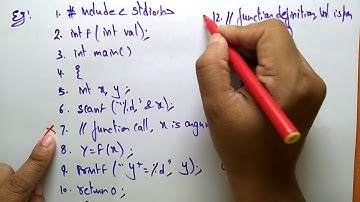 Eg:
1. # include < stdio.h>
2. int f ( int val );
3. int main()
4. {
5. int x, y;
6. scanf ("%d", &x);
7. // function call, x is argu
8. Y = F(x) ;
9. printf ("y=%d", y);
10. return 0 ;
12. // function definition, val is